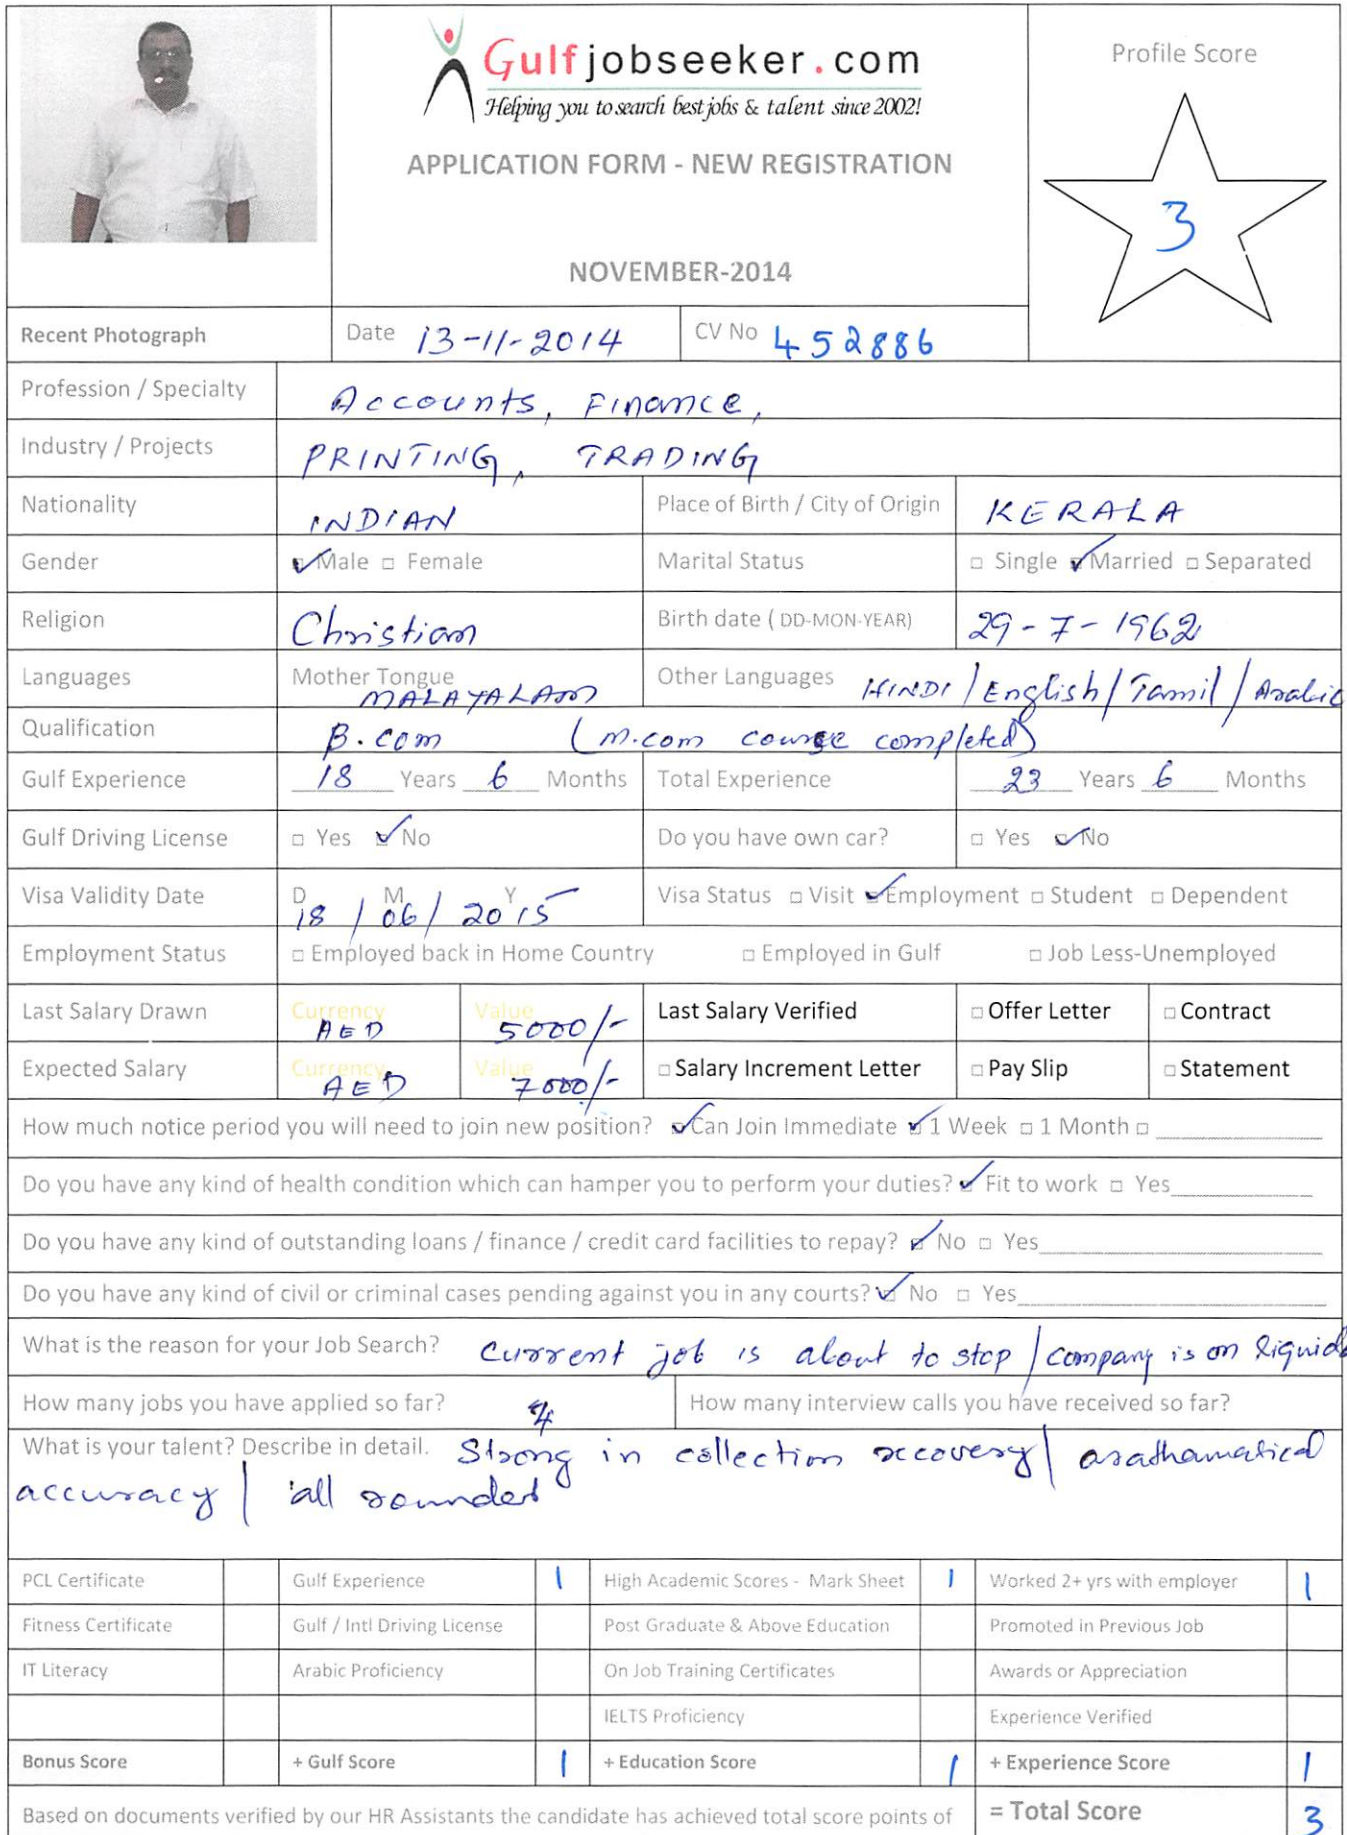 Gulfjobseeker.com
Helping you to search best jobs & talent since 2002!
APPLICATION FORM - NEW REGISTRATION
NOVEMBER-2014
Profile Score
3
Recent Photograph Date 13-11-2014 CV No 452886
Profession / Specialty Accounts, Finance,
Industry / Projects PRINTING, TRADING
Nationality INDIAN Place of Birth / City of Origin KERALA
Gender Male Female Marital Status Single Married Separated
Religion Christian Birth date ( DD-MON-YEAR) 29-7-1962
Languages Mother Tongue MALAYALAM Other Languages HINDI / English / Tamil / Arabic
Qualification B.com (M.com course completed)
Gulf Experience 18 Years 6 Months Total Experience 23 Years 6 Months
Gulf Driving License Yes No Do you have own car? Yes No
Visa Validity Date D M Y 18 / 06 / 2015 Visa Status Visit Employment Student Dependent
Employment Status Employed back in Home Country Employed in Gulf Job Less-Unemployed
Last Salary Drawn Currency AED Value 5000/- Last Salary Verified Offer Letter Contract
Expected Salary Currency AED Value 7000/- Salary Increment Letter Pay Slip Statement
How much notice period you will need to join new position? Can Join Immediate 1 Week 1 Month
Do you have any kind of health condition which can hamper you to perform your duties? Fit to work Yes
Do you have any kind of outstanding loans / finance / credit card facilities to repay? No Yes
Do you have any kind of civil or criminal cases pending against you in any courts? No Yes
What is the reason for your Job Search? Current job is about to stop / company is on
How many jobs you have applied so far? 4 How many interview calls you have received so far?
What is your talent? Describe in detail. Strong in collection recovery / arathamatical
accuracy / all rounder
PCL Certificate Gulf Experience 1 High Academic Scores - Mark Sheet 1 Worked 2+ yrs with employer 1
Fitness Certificate Gulf / Intl Driving License Post Graduate & Above Education Promoted in Previous Job
IT Literacy Arabic Proficiency On Job Training Certificates Awards or Appreciation
IELTS Proficiency Experience Verified
Bonus Score + Gulf Score 1 + Education Score 1 + Experience Score 1
Based on documents verified by our HR Assistants the candidate has achieved total score points of = Total Score 3